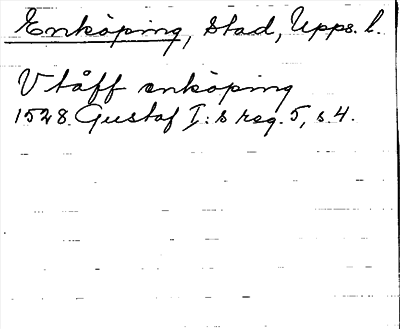 Enköping, stad, Upps. l.
V tåff enköping
1528. Gustaf I:s reg. 5, s. 4.